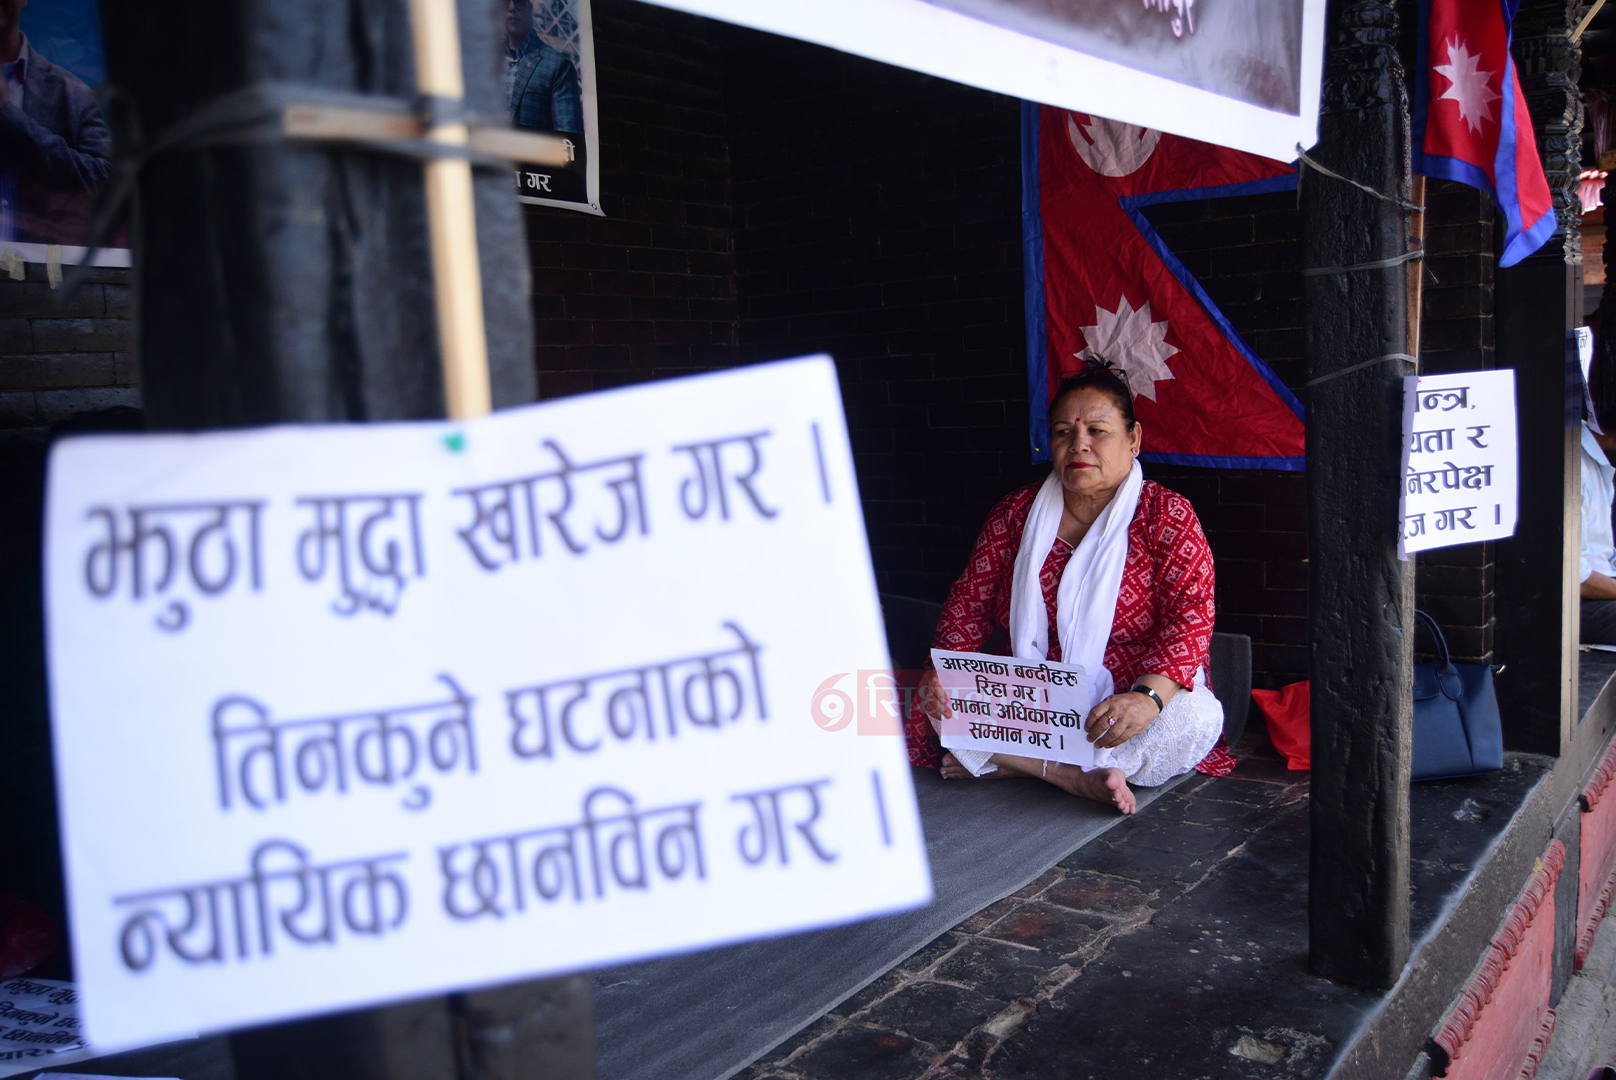 गर
झुठा मुद्दा खारेज गर ।
तिनकुने घटनाको
न्यायिक छानविन गर ।
आस्थाका बन्दीहरू
रिहा गर ।
मानव अधिकारको
सम्मान गर ।
न्त्र,
यता र
निरपेक्ष
रेज गर ।